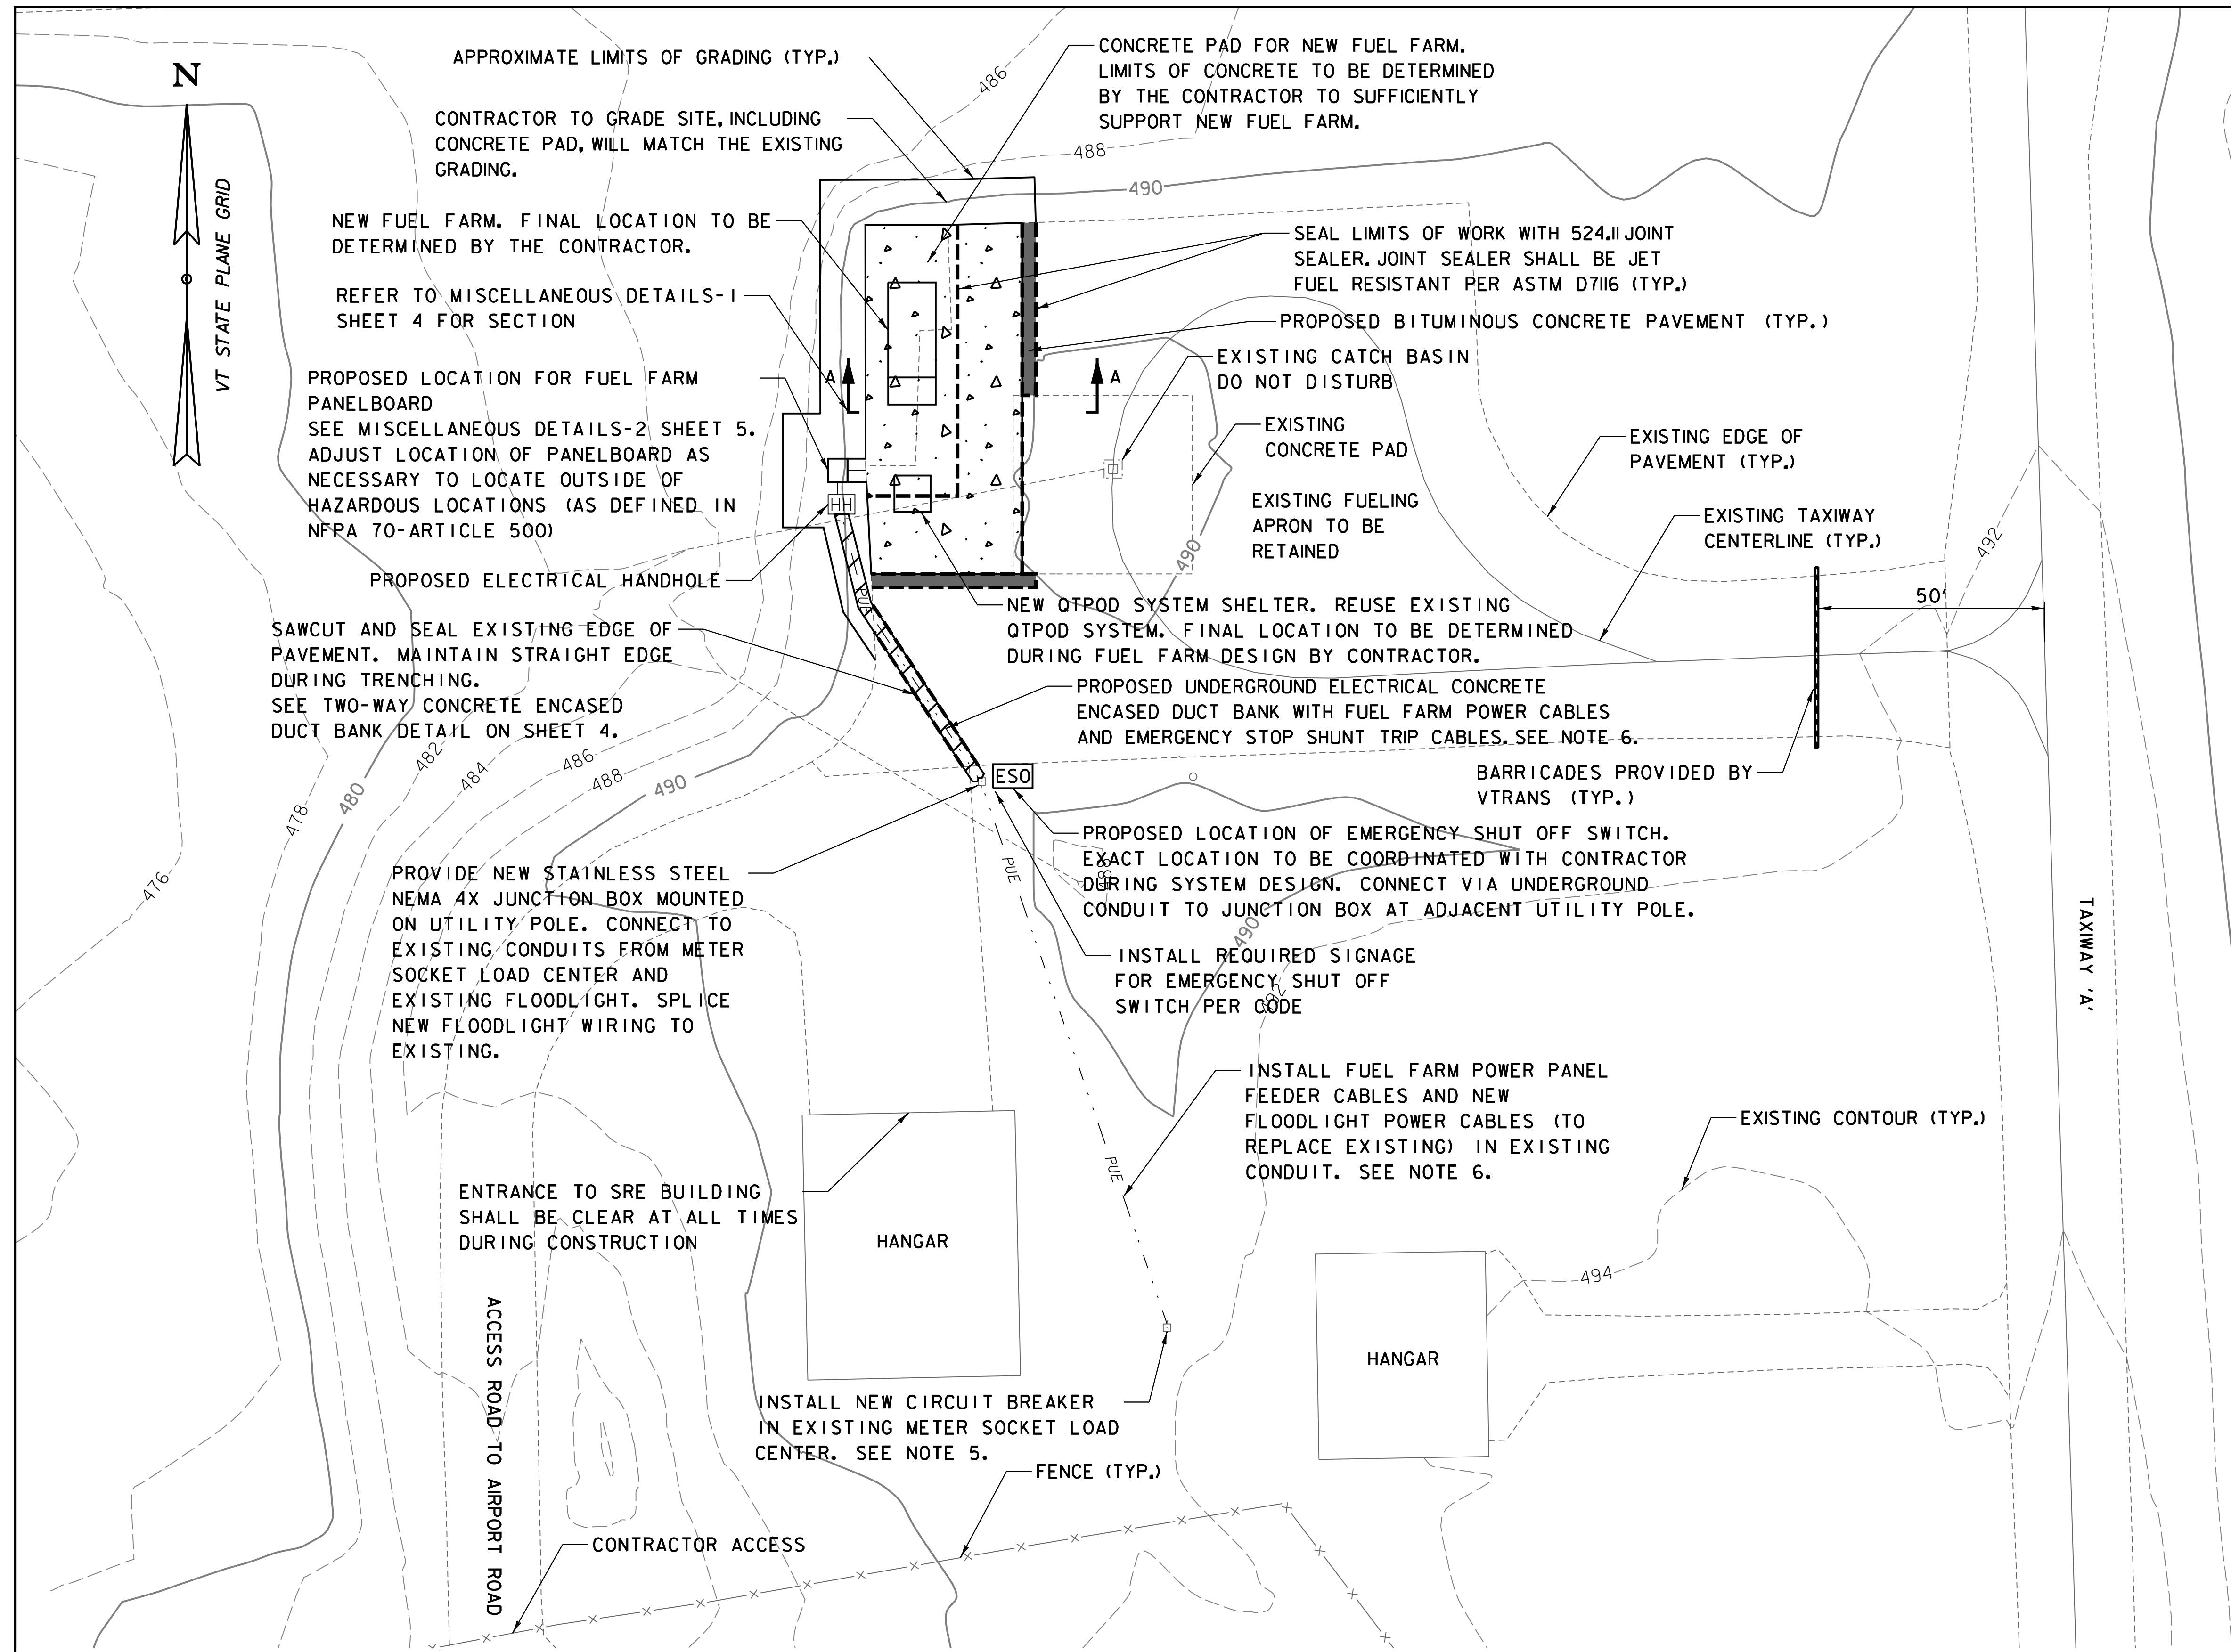 N
VT STATE PLANE GRID
APPROXIMATE LIMITS OF GRADING (TYP.)
CONTRACTOR TO GRADE SITE, INCLUDING
CONCRETE PAD, WILL MATCH THE EXISTING
GRADING.
NEW FUEL FARM. FINAL LOCATION TO BE
DETERMINED BY THE CONTRACTOR.
REFER TO MISCELLANEOUS DETAILS-1
SHEET 4 FOR SECTION
PROPOSED LOCATION FOR FUEL FARM
PANELBOARD
SEE MISCELLANEOUS DETAILS-2 SHEET 5.
ADJUST LOCATION OF PANELBOARD AS
NECESSARY TO LOCATE OUTSIDE OF
HAZARDOUS LOCATIONS (AS DEFINED IN
NFPA 70-ARTICLE 500)
PROPOSED ELECTRICAL HANDHOLE
SAWCUT AND SEAL EXISTING EDGE OF
PAVEMENT. MAINTAIN STRAIGHT EDGE
DURING TRENCHING.
SEE TWO-WAY CONCRETE ENCASED
DUCT BANK DETAIL ON SHEET 4.
PROVIDE NEW STAINLESS STEEL
NEMA 4X JUNCTION BOX MOUNTED
ON UTILITY POLE. CONNECT TO
EXISTING CONDUITS FROM METER
SOCKET LOAD CENTER AND
EXISTING FLOODLIGHT. SPLICE
NEW FLOODLIGHT WIRING TO
EXISTING.
ENTRANCE TO SRE BUILDING
SHALL BE CLEAR AT ALL TIMES
DURING CONSTRUCTION
ACCESS ROAD TO AIRPORT ROAD
CONTRACTOR ACCESS
CONCRETE PAD FOR NEW FUEL FARM.
LIMITS OF CONCRETE TO BE DETERMINED
BY THE CONTRACTOR TO SUFFICIENTLY
SUPPORT NEW FUEL FARM.
486
488
490
SEAL LIMITS OF WORK WITH 524.11 JOINT
SEALER. JOINT SEALER SHALL BE JET
FUEL RESISTANT PER ASTM D7116 (TYP.)
PROPOSED BITUMINOUS CONCRETE PAVEMENT (TYP.)
EXISTING CATCH BASIN
DO NOT DISTURB
A
A
EXISTING
CONCRETE PAD
EXISTING FUELING
APRON TO BE
RETAINED
EXISTING EDGE OF
PAVEMENT (TYP.)
EXISTING TAXIWAY
CENTERLINE (TYP.)
HH
490
492
50'
NEW QTPOD SYSTEM SHELTER. REUSE EXISTING
QTPOD SYSTEM. FINAL LOCATION TO BE DETERMINED
DURING FUEL FARM DESIGN BY CONTRACTOR.
PUE
PROPOSED UNDERGROUND ELECTRICAL CONCRETE
ENCASED DUCT BANK WITH FUEL FARM POWER CABLES
AND EMERGENCY STOP SHUNT TRIP CABLES. SEE NOTE 6.
BARRICADES PROVIDED BY
VTRANS (TYP.)
ESO
PROPOSED LOCATION OF EMERGENCY SHUT OFF SWITCH.
EXACT LOCATION TO BE COORDINATED WITH CONTRACTOR
DURING SYSTEM DESIGN. CONNECT VIA UNDERGROUND
CONDUIT TO JUNCTION BOX AT ADJACENT UTILITY POLE.
PUE
INSTALL REQUIRED SIGNAGE
FOR EMERGENCY SHUT OFF
SWITCH PER CODE
490
492
476
478
480
482
484
486
488
490
INSTALL FUEL FARM POWER PANEL
FEEDER CABLES AND NEW
FLOODLIGHT POWER CABLES (TO
REPLACE EXISTING) IN EXISTING
CONDUIT. SEE NOTE 6.
PUE
EXISTING CONTOUR (TYP.)
494
TAXIWAY 'A'
HANGAR
HANGAR
INSTALL NEW CIRCUIT BREAKER
IN EXISTING METER SOCKET LOAD
CENTER. SEE NOTE 5.
FENCE (TYP.)